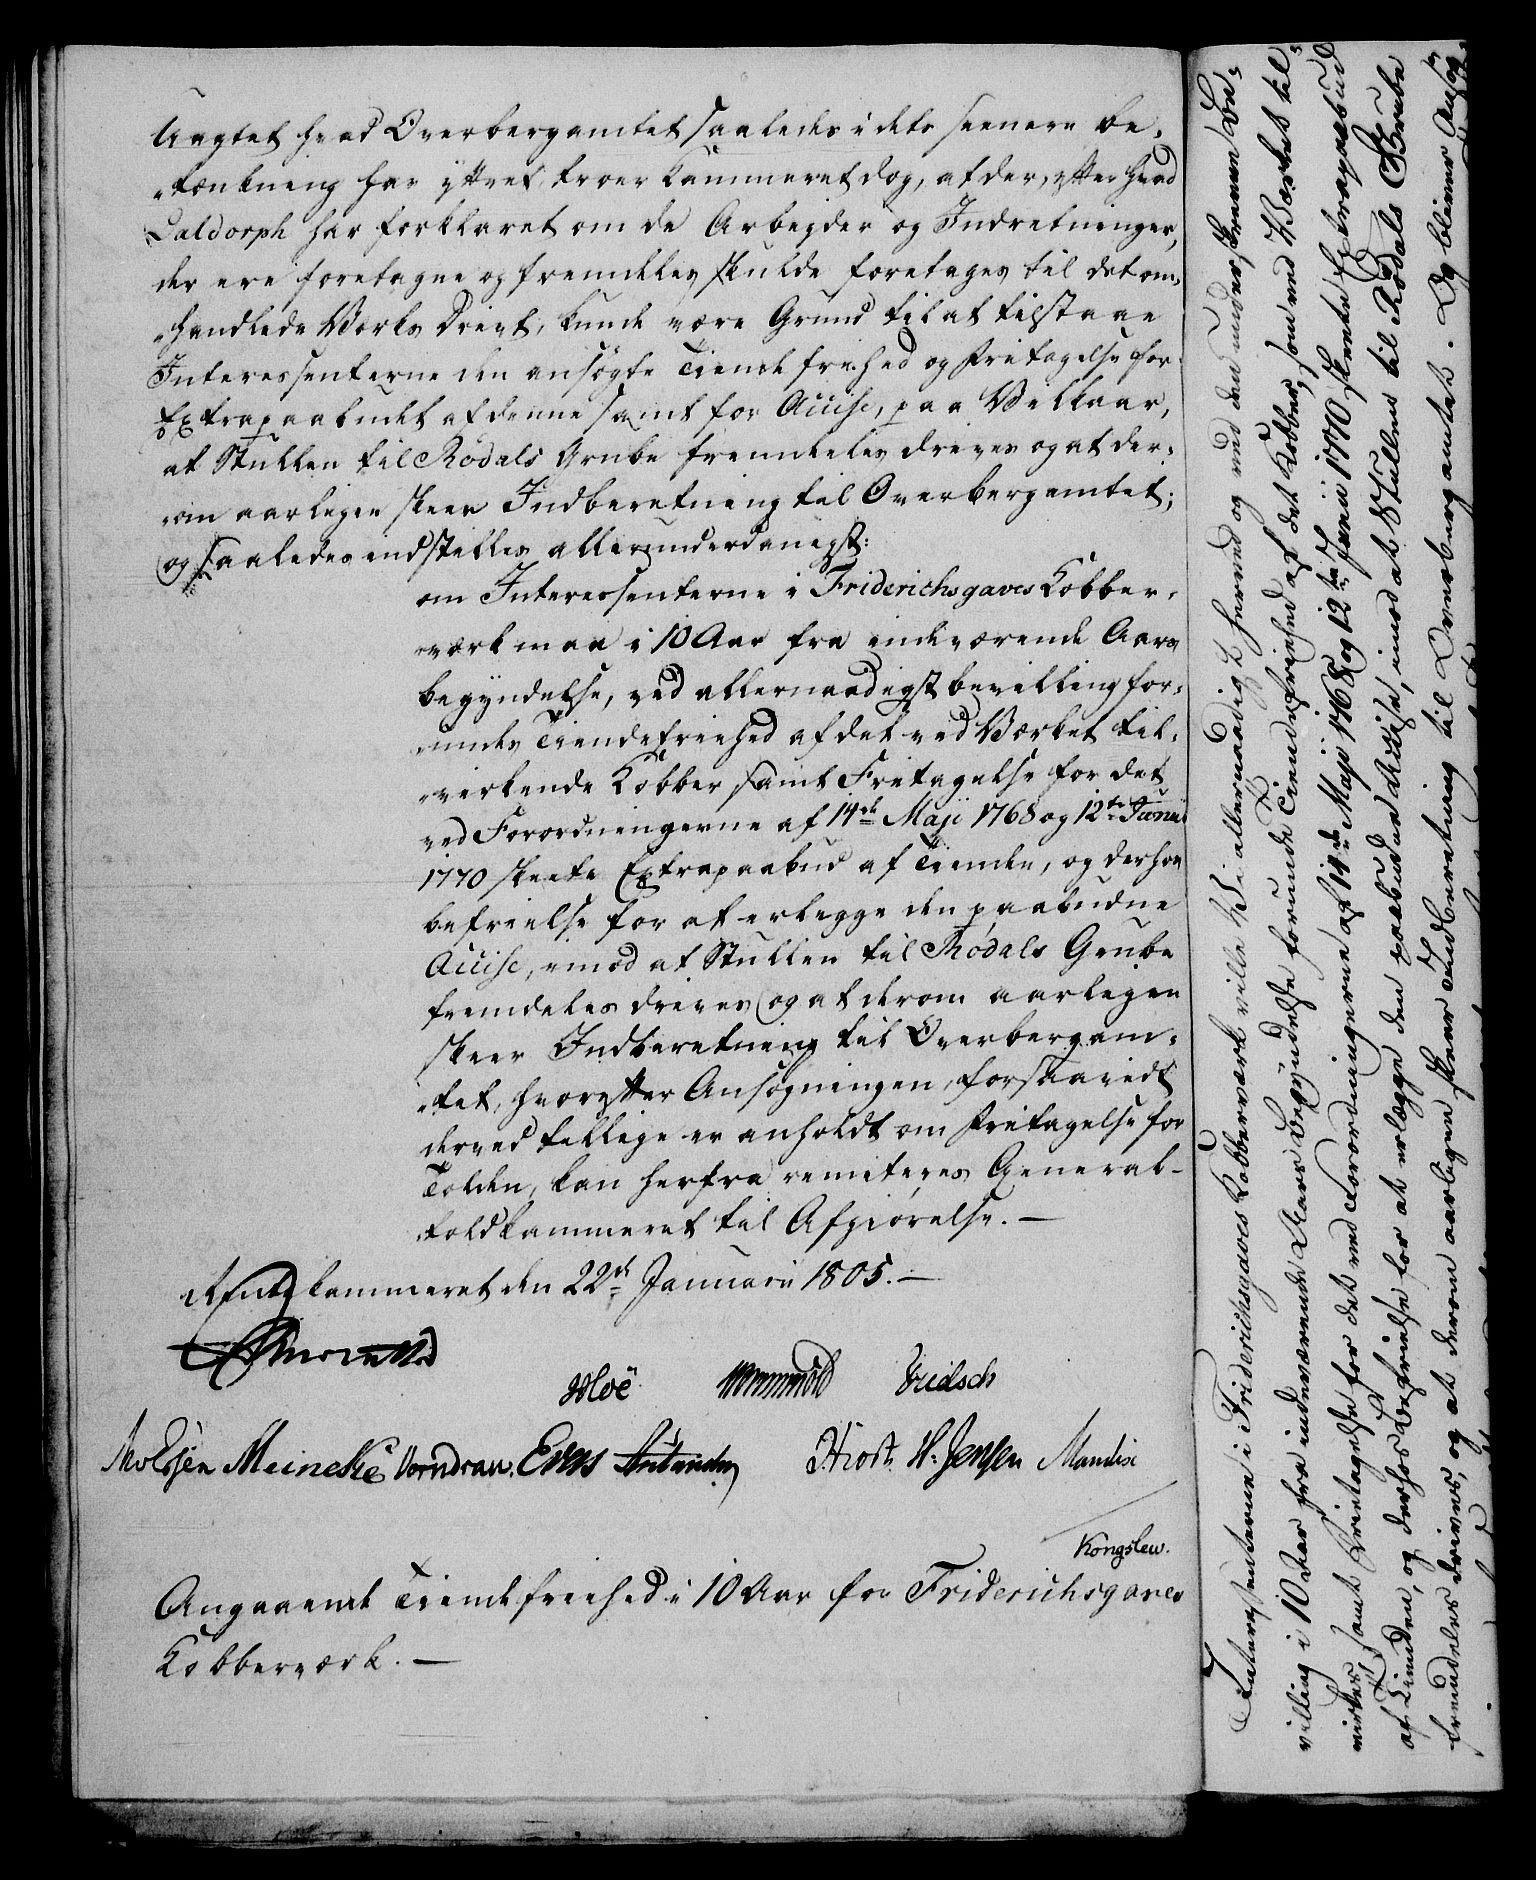 Uagtet hvad Overbergamtet saaledes i dets seenere be-
tænkning har yttret, troer Kammeret dog, at der, efter hvad
Daldorph har forklaret om de Arbeider og Indretninger,
der ere foretagne og fremdeles skulde foretages til det om-
handlede Værks Drivt, kunde være Grund til at tilstaae
Interessenterne den ansøgte Tiende friehed og fritagelse for
Extrapaabudet af denne samt for Accise, paa Velkaar,
at Stullen til Rødals Grube fremdeles drives og at der-
om aarligen skeer Indberetning til Overbergamtet;
og saaledes indstilles allerunderdanigst:
om Interessenterne i Friderichsgaves Kobber-
værk maa i 10 Aar fra indeværende Aars
begyndelse, ved allernaadigst bevilling for-
undes Tiendefriehed af det ved Værket til-
virkende Kobber samt Fritagelse for det
ved Forordningerne af 14de Maji 1768 og 12te Junii
1770 skeete Extrapaabud af Tienden, og derhos
befrielse for at erlegge den paabudne
Accise, imod at Stullen til Rødals Grube
fremdeles drives og at derom aarligen
skeer Indberetning til Overbergam-
tet, hvorefter Ansøgningen, forsaavidt
derved tillige er anholdt om fritagelse for
Tolden, kan herfra remiteres General-
toldkammeret til Afgiørelse. —
Rentekammeret den 22de Januarii 1805. —
Hoë Wormskiold Fridsch
Meincke Vorndran. Evers Hiort. H. Jensen Mandix
Kongslew.
Angaaende Tiendefriehed i 10 Aar for Friderichsgaves
Kobberværk. —
Interessenterne i Friderichsgaves Kobberværk ville Vi allernaadigst hermed og ved den under skreven Be-
villing i 10 Aar fra indeværende Aars Begyndelse forunde Tiendefriehed af det Kobber, som ved Værket til-
virkes, samt Fritagelse for det ved Forordningerne af 14de Maji 1768 og 12te Junii 1770 skeete Extrapaabud
af Tienden, og derhos Befrielse for at erlægge den paabudne Accise, imod at Stullen til Rødals Grube
fremdeles drives, og at derom aarligen skeer Indberetning til Overbergamtet. Og bliver Ansøg-